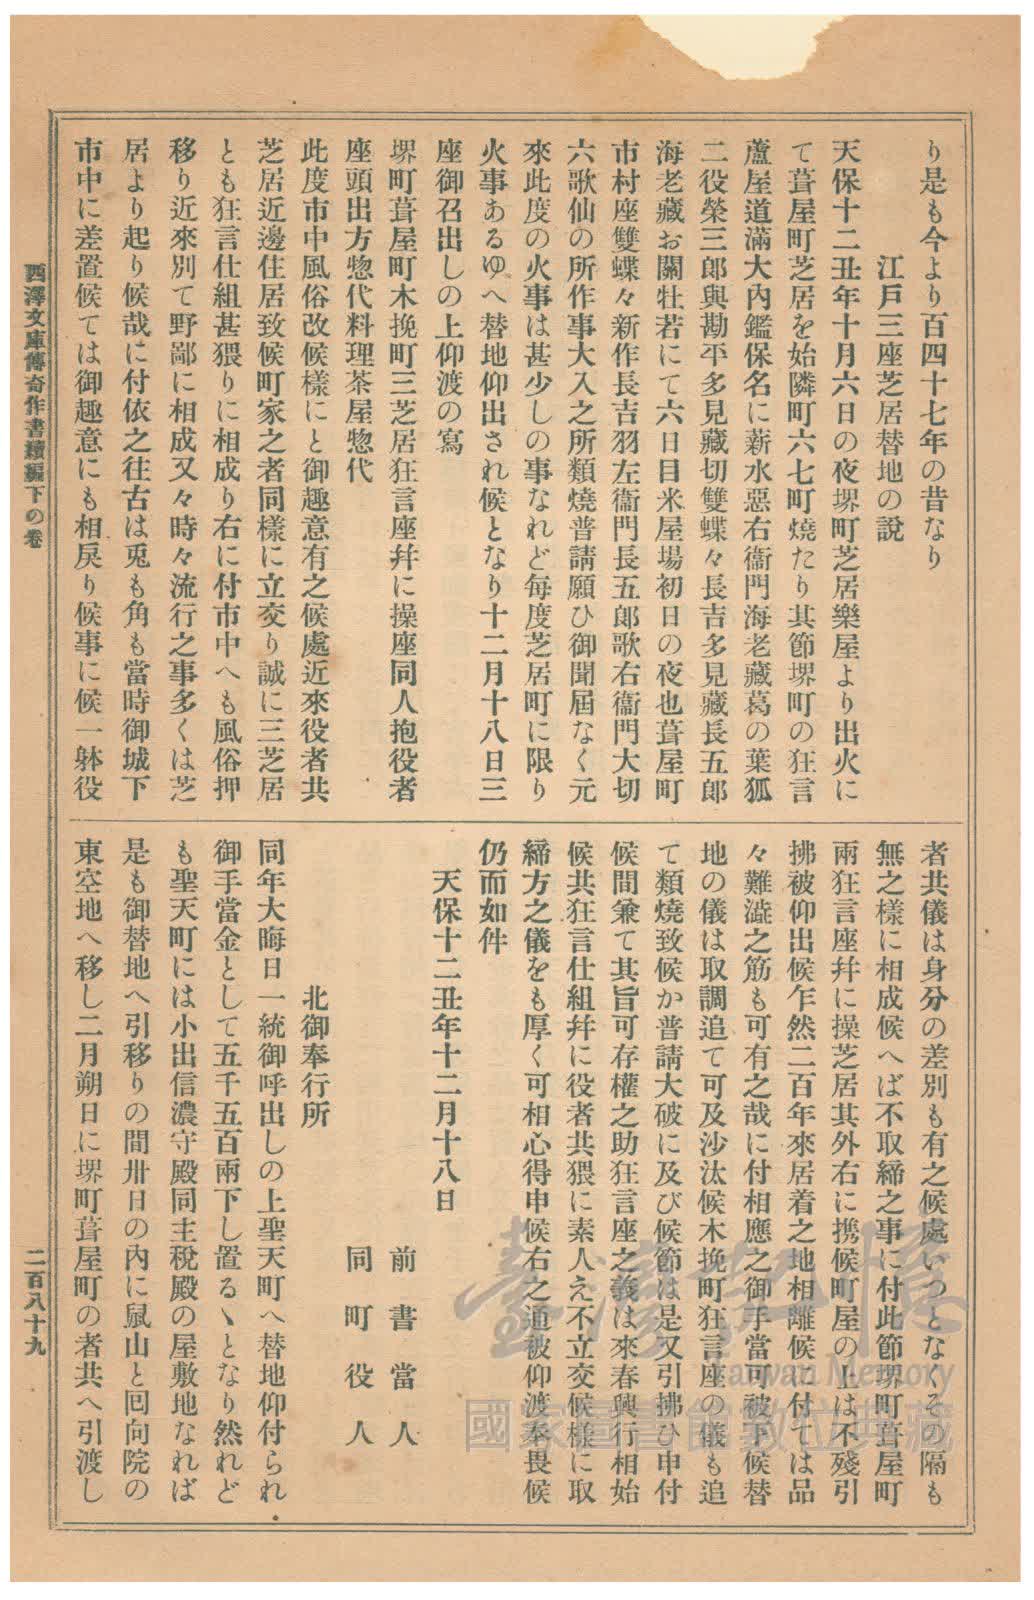 り是も今より百四十七年の昔なり
江戸三座芝居替地の説
天保十二丑年十月六日の夜堺町芝居樂屋より出火に
て葺屋町芝居を始隣町六七町燒たり其節堺町の狂言
蘆屋道滿大內鑑保名に薪水惡右衞門海老藏葛の葉狐
二役榮三郎與勘平多見藏切雙蝶々長吉多見藏長五郎
海老藏お關牡若にて六日目米屋場初日の夜也葺屋町
市村座雙蝶々新作長吉羽左衞門長五郎歌右衞門大切
六歌仙の所作事大入之所類燒普請願ひ御聞屆なく元
來此度の火事は甚少しの事なれど每度芝居町に限り
火事あるゆへ替地仰出され候となり十二月十八日三
座御召出しの上仰渡の寫
堺町葺屋町木挽町三芝居狂言座幷に操座同人抱役者
座頭出方惣代料理茶屋惣代
此度市中風俗改候樣にと御趣意有之候處近來役者共
芝居近邊住居致候町家之者同樣に立交り誠に三芝居
とも狂言仕組甚猥りに相成り右に付市中へも風俗押
移り近來別て野鄙に相成又々時々流行之事多くは芝
居より起り候哉に付依之往古は兎も角も當時御城下
市中に差置候ては御趣意にも相戾り候事に候一躰役
者共儀は身分の差別も有之候處いつとなくその隔も
無之樣に相成候へば不取締之事に付此節堺町葺屋町
兩狂言座幷に操芝居其外右に携候町屋の上は不殘引
拂被仰出候乍然二百年來居着之地相離候に付ては品
々難澁之筋も可有之哉に付相應之御手當可被下候替
地の儀は取調追て可及沙汰候木挽町狂言座の儀も追
て類燒致候か普請大破に及び候節は是又引拂ひ申付
候間兼て其旨可存權之助狂言座之義は來春興行相始
候共狂言仕組幷に役者共猥に素人え不立交候樣に取
締方之儀をも厚く可相心得申候右之通被仰渡奉畏候
仍而如件
天保十二丑年十二月十八日
前書當人
同町役人
北御奉行所
同年大晦日一統御呼出しの上聖天町へ替地仰付られ
御手當金として五千五百兩下し置るゝとなり然れど
も聖天町には小出信濃守殿同主稅殿の屋敷地なれば
是も御替地へ引移りの間卅日の內に鼠山と囘向院の
東空地へ移し二月朔日に堺町葺屋町の者共へ引渡し
西澤文庫傳奇作書續編下の卷
二百八十九
臺灣記憶
Taiwan Memory
國家圖書館數位典藏